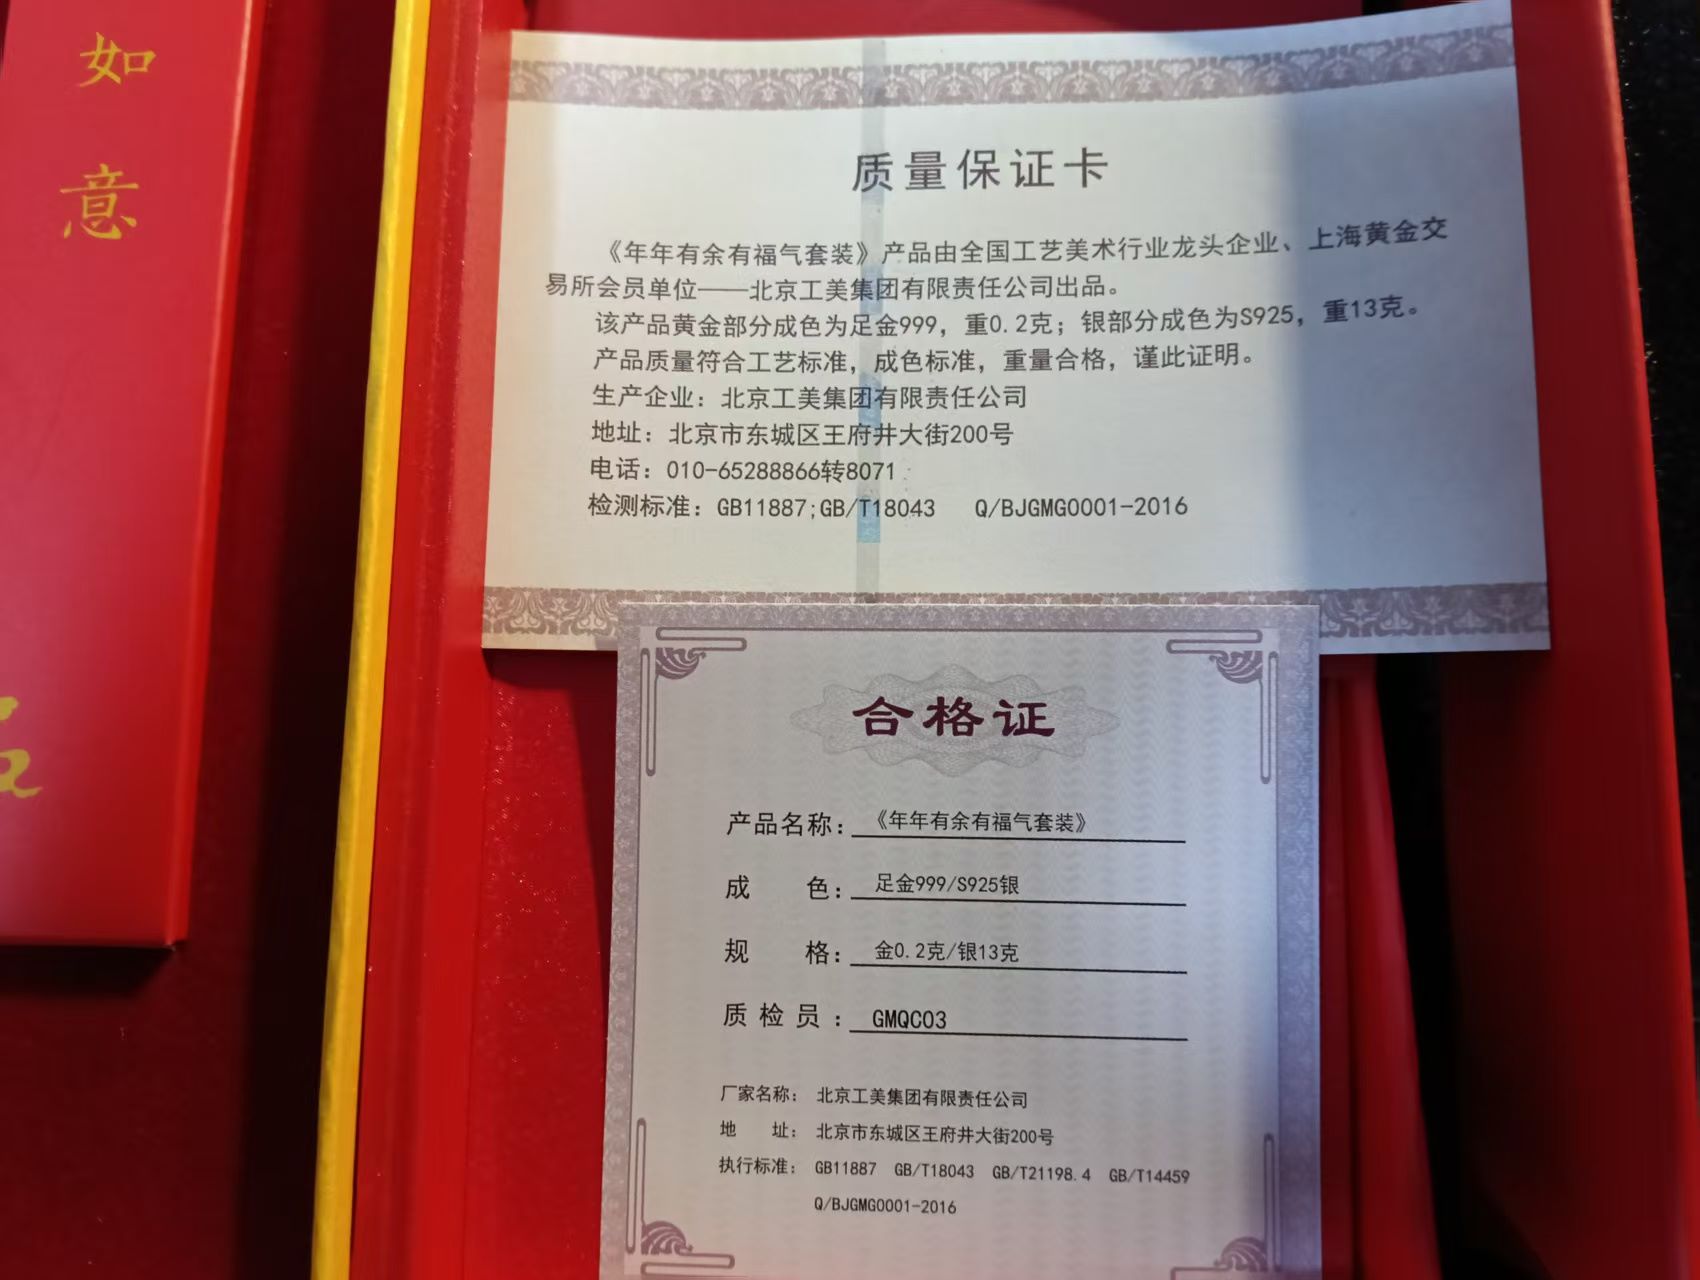 如
意
质量保证卡
《年年有余有福气套装》产品由全国工艺美术行业龙头企业、上海黄金交
易所会员单位——北京工美集团有限责任公司出品。
该产品黄金部分成色为足金999，重0.2克；银部分成色为S925，重13克。
产品质量符合工艺标准，成色标准，重量合格，谨此证明。
生产企业：北京工美集团有限责任公司
地址：北京市东城区王府井大街200号
电话：010-65288866转8071
检测标准：GB11887;GB/T18043 Q/BJGMG0001-2016
合格证
产品名称：《年年有余有福气套装》
成 色：足金999/S925银
规 格：金0.2克/银13克
质检员：GMQC03
厂家名称：北京工美集团有限责任公司
地 址：北京市东城区王府井大街200号
执行标准：GB11887 GB/T18043 GB/T21198.4 GB/T14459
Q/BJGMG0001-2016